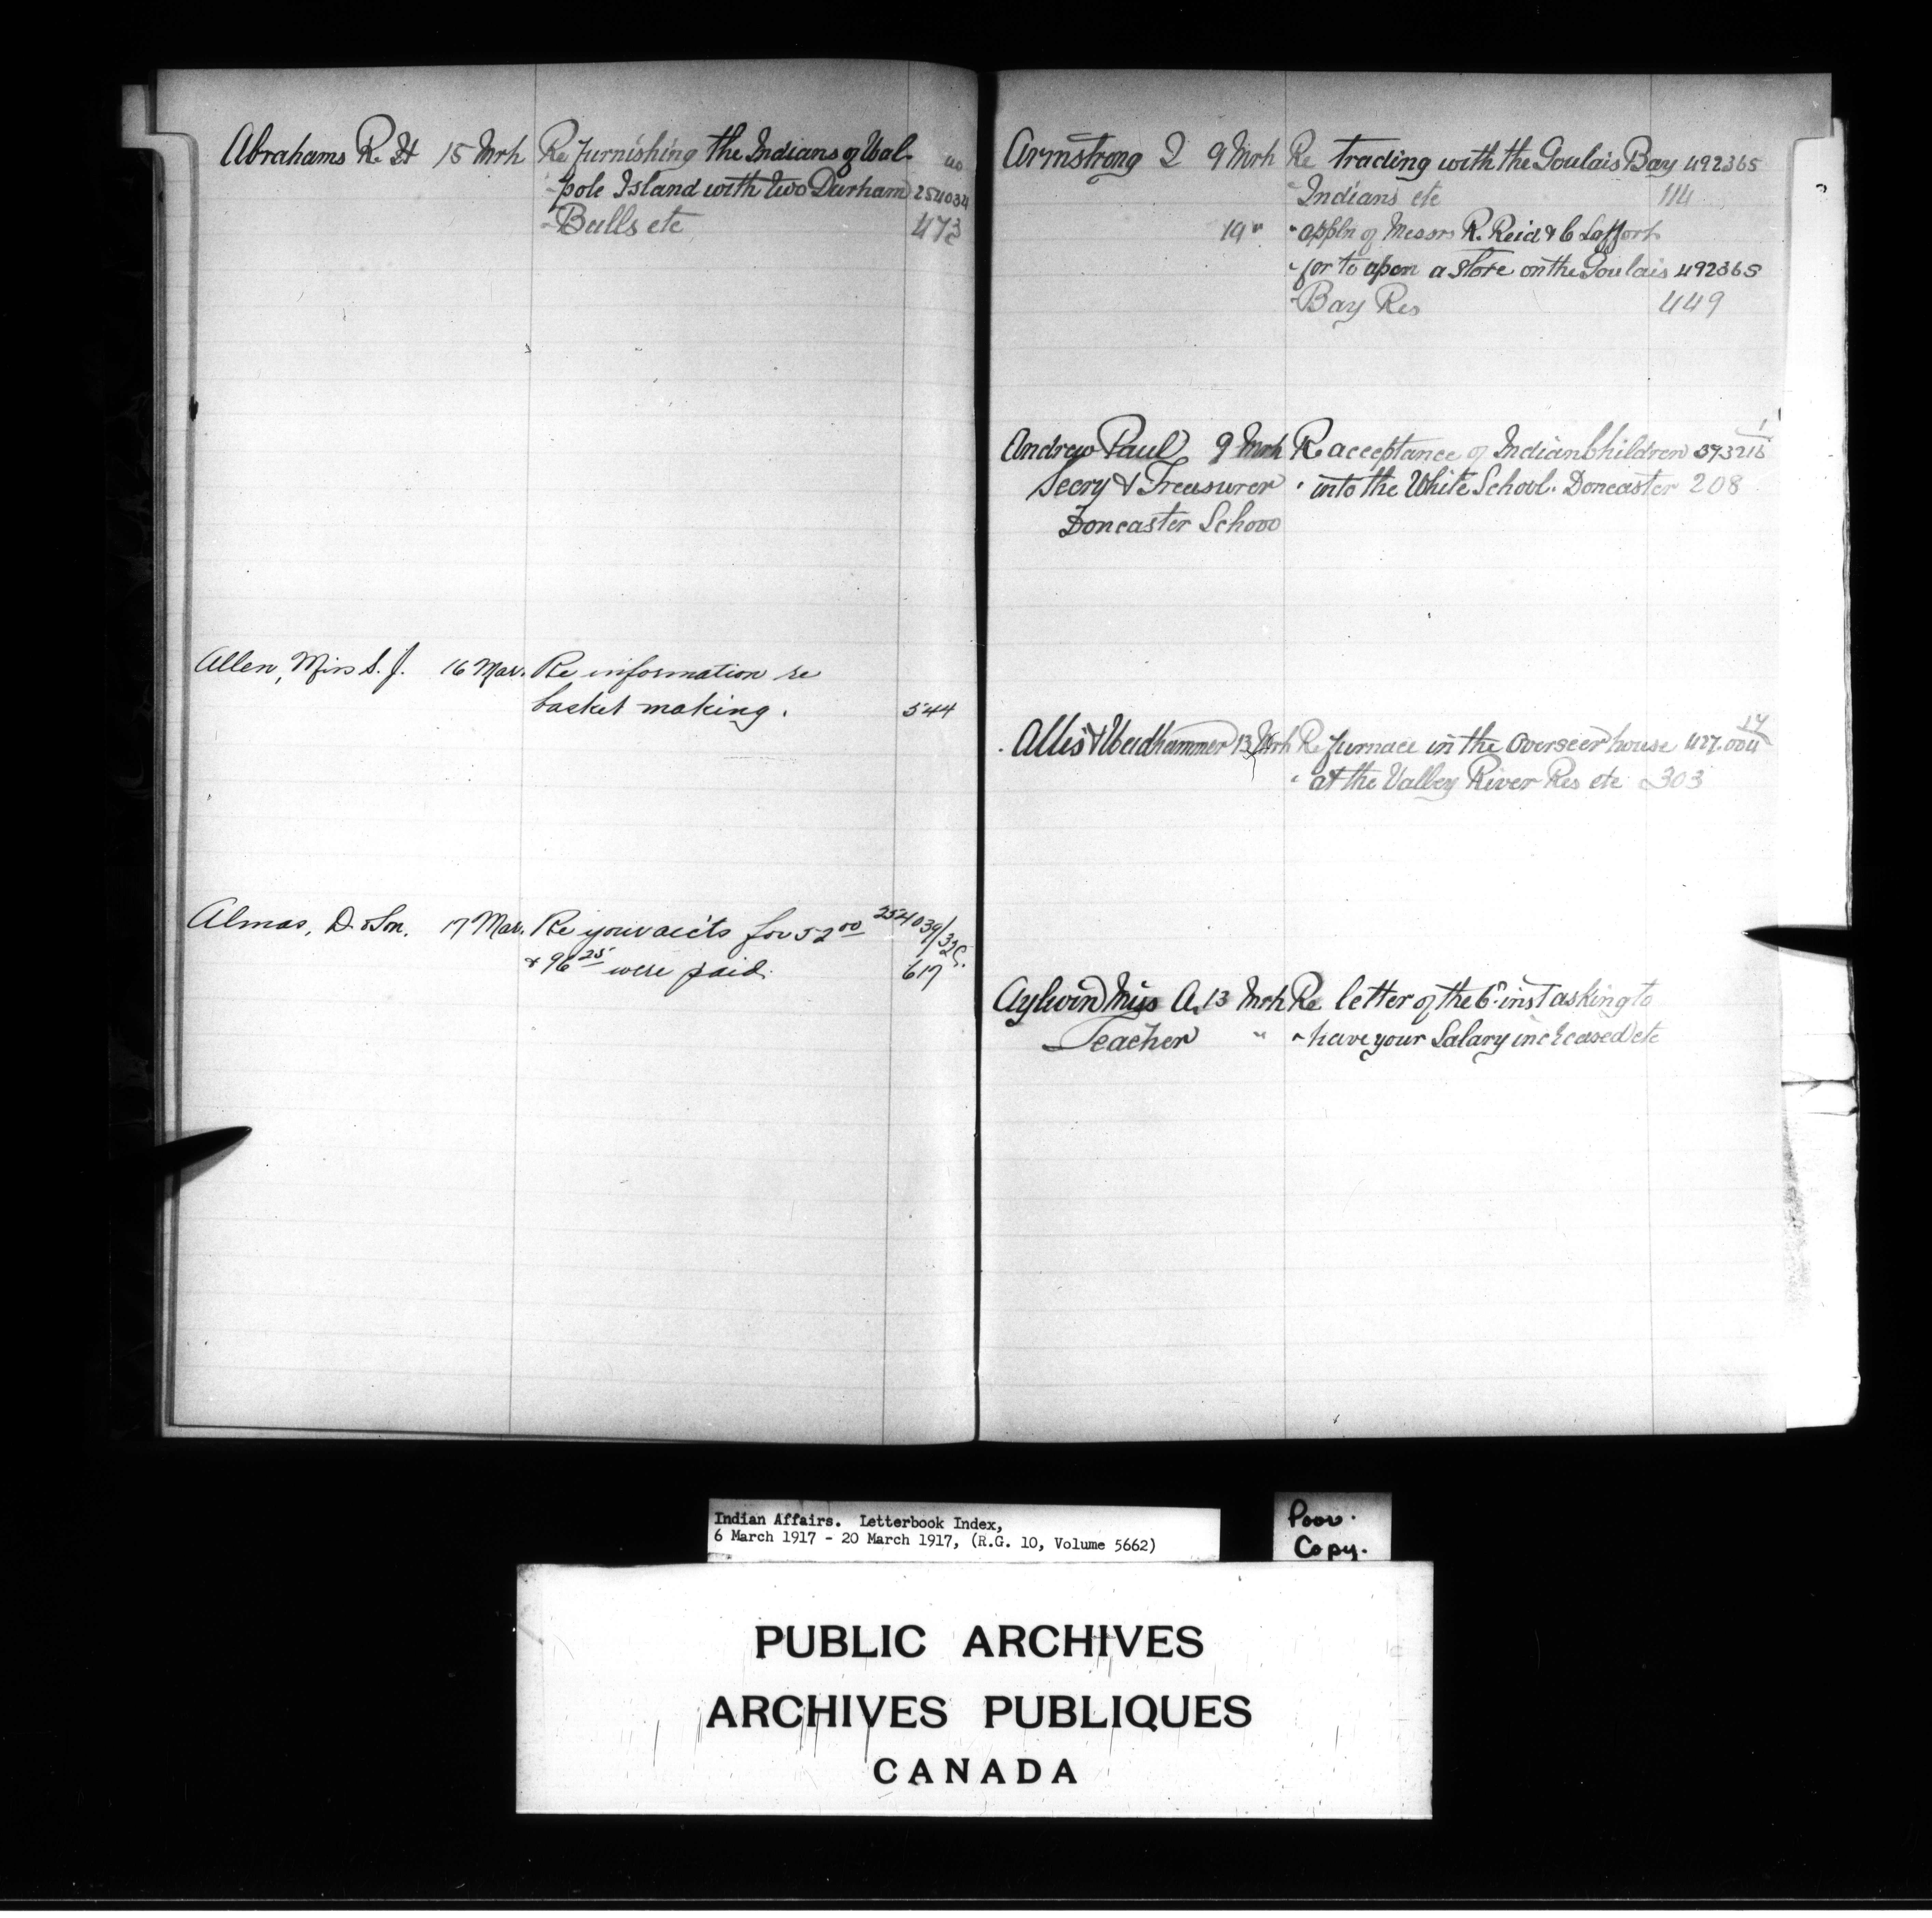 Abrahams R H 15 Mrh Re furnishing the Indians of Wal-
- pole Island with two Durham 254034
- Bulls etc 473
Allen, Miss S. J. 16 Mar. Re information re
basket making. 544
Almas, D. & Son. 17 Mar. Re your acc'ts for 52 00 254039/
& 96 25 were paid. 617
Armstrong 9 Mrh Re trading with the Goulais Bay 492365
" Indians etc 114
19 " " appln of Messrs R. Reid & C Laffort
" for to open a store on the Goulais 492365
" Bay Res 449
Andrew Paul 9 Mrh R acceptance of Indian Children
Secry & Treasurer " into the White School. Doncaster 208
Doncaster Schooo
Allis & 13 Mrh Re furnace in the Overseer house 427.004
" at the Valley River Res etc 303
Aylwin Miss A. 13 Mrh Re letter of the 6" inst asking to
Teacher " " have your Salary increased etc
Indian Affairs. Letterbook Index,
6 March 1917 - 20 March 1917, (R.G. 10, Volume 5662)
Poor.
Copy.
PUBLIC ARCHIVES
ARCHIVES PUBLIQUES
CANADA